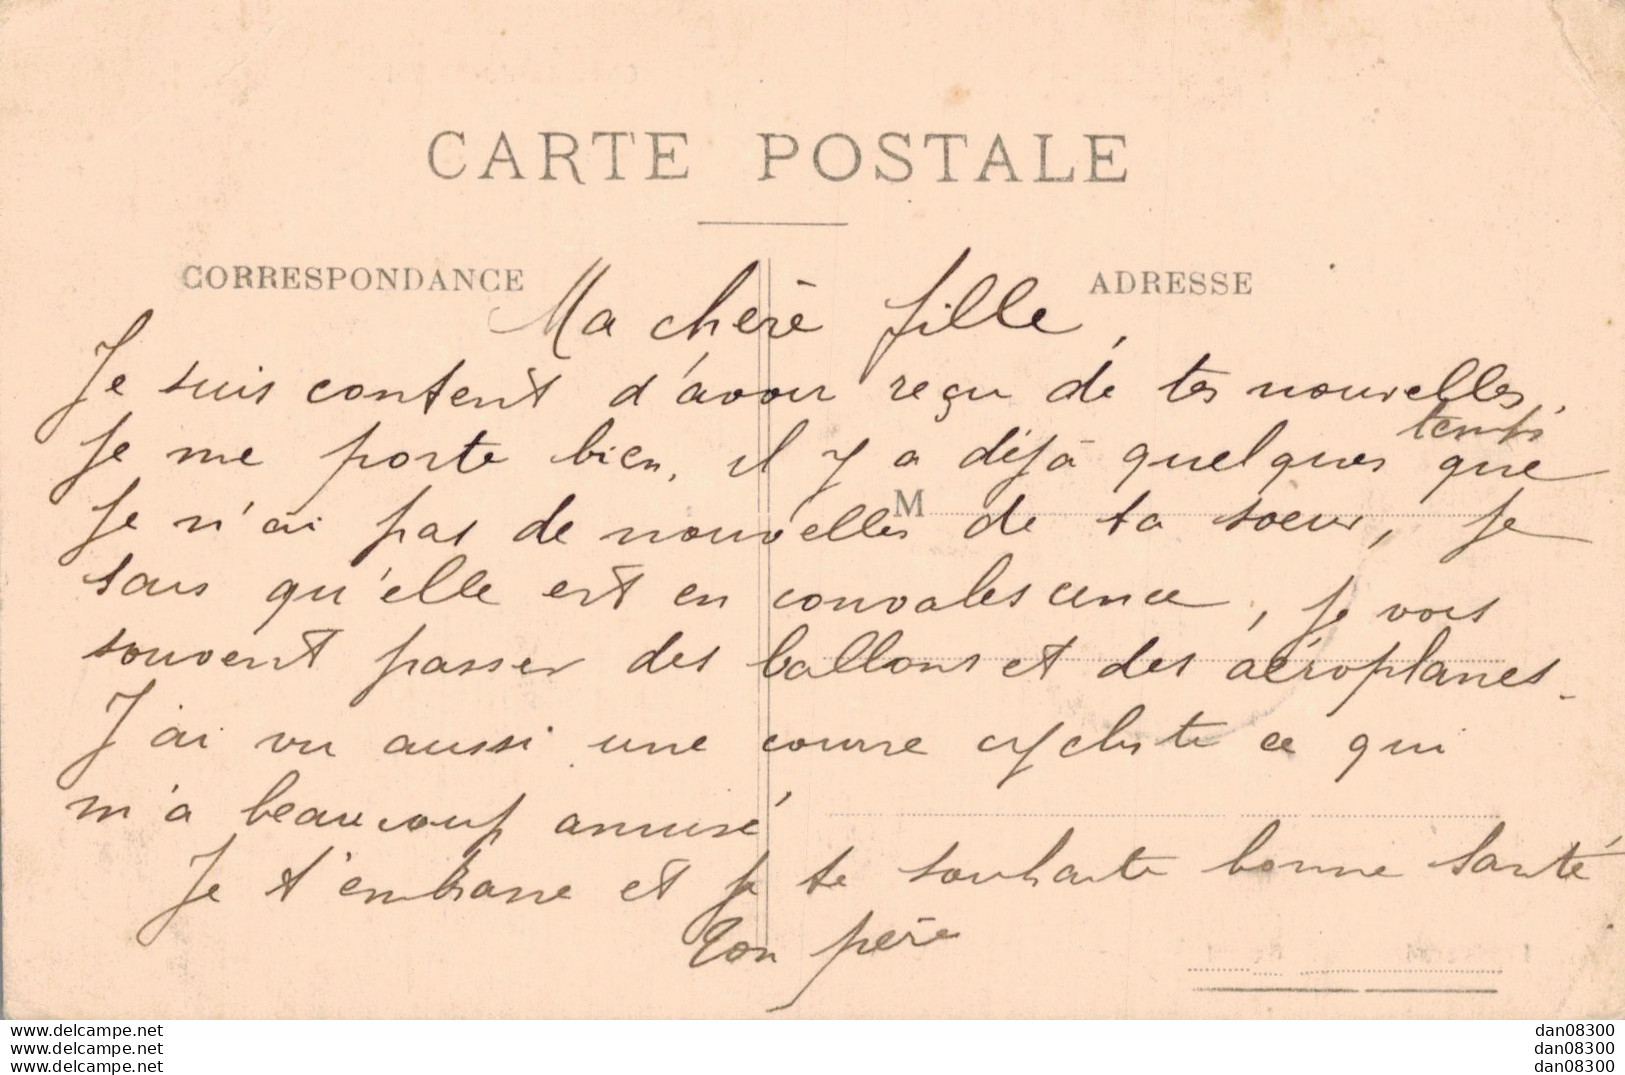 CARTE POSTALE
CORRESPONDANCE
ADRESSE
Ma chère fille,
Je suis content d'avoir reçu de tes nouvelles.
Je me porte bien, il y a déjà quelques temps que
je n'ai pas de nouvelles de ta soeur, je
M
sais qu'elle est en convalescence, je vois
souvent passer des ballons et des aéroplanes.
J'ai vu aussi une course cycliste ce qui
m'a beaucoup amusé,
Je t'embrasse et je te souhaite bonne santé
Ton père
www.delcampe.net
www.delcampe.net
www.delcampe.net
dan08300
dan08300
dan08300